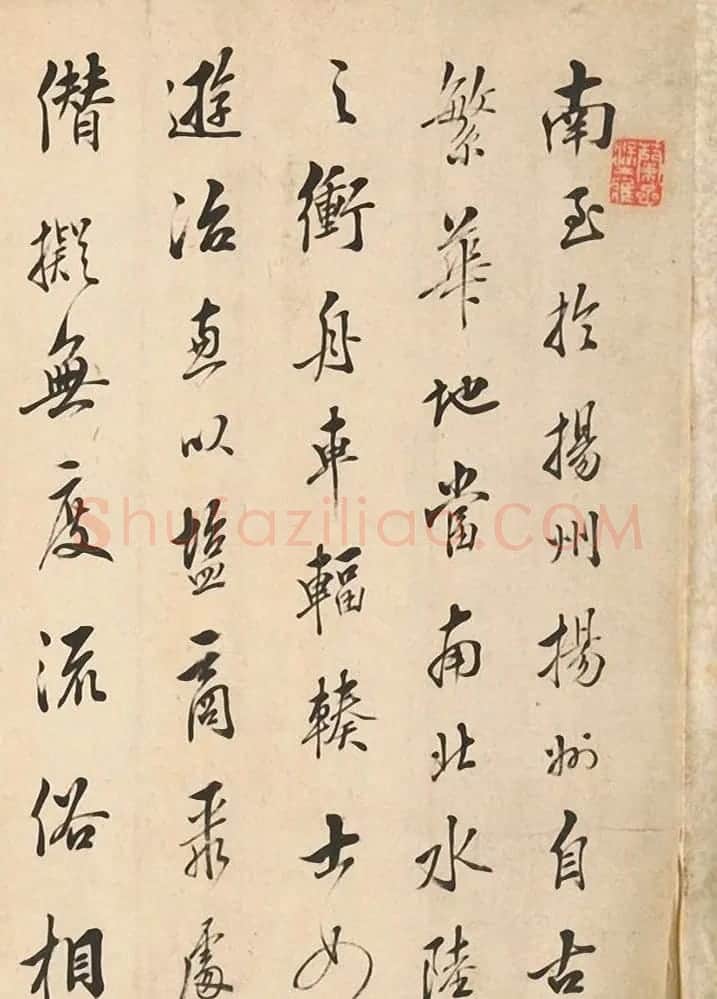 南至於揚州揚州自古
繁華地當南北水陸
之衝舟車輻輳士女
遊冶直以塩商聚處
僭擬無度流俗相
Shufaziliao.COM